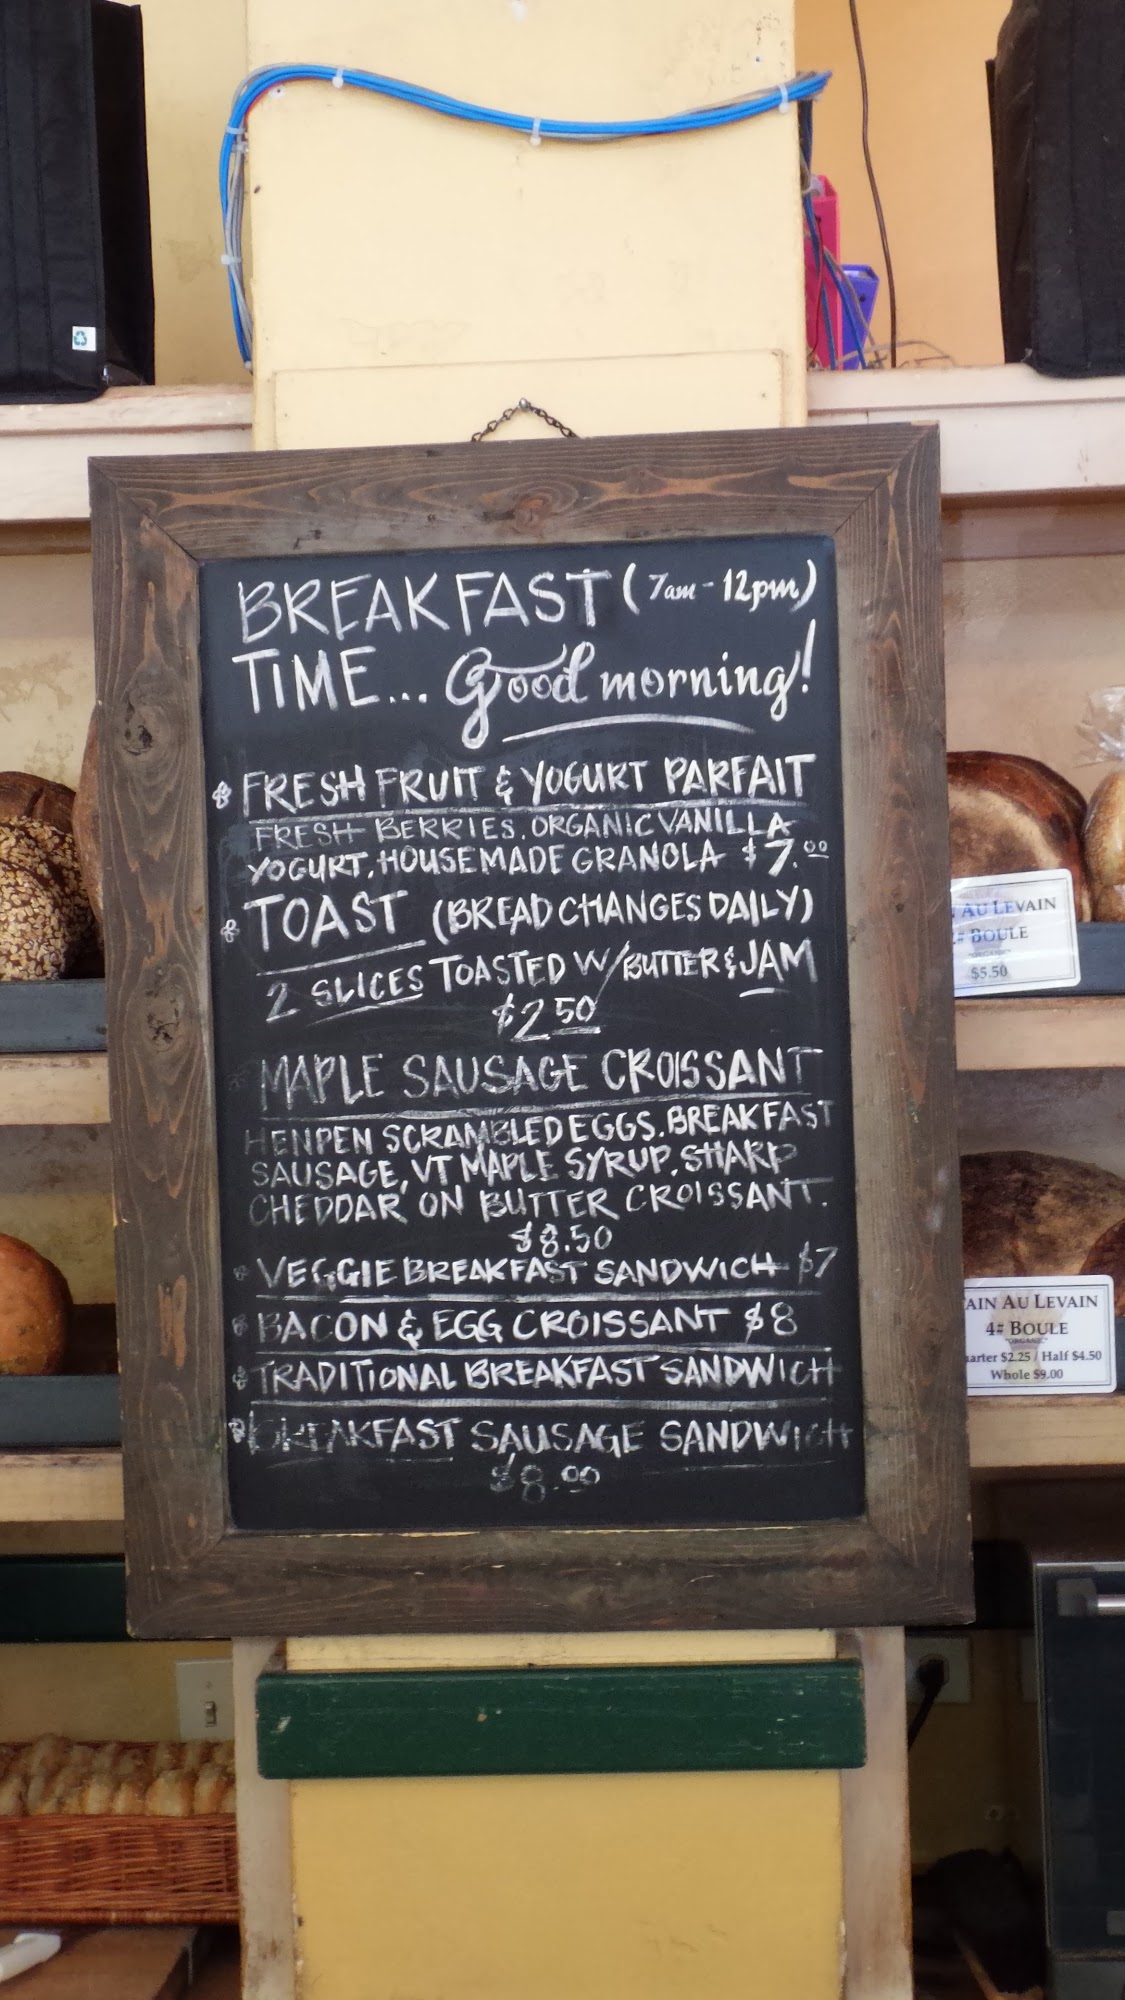 BREAKFAST (7am - 12pm)
TIME... Good morning!
FRESH FRUIT & YOGURT PARFAIT
FRESH BERRIES. ORGANIC VANILLA
YOGURT, HOUSEMADE GRANOLA $7.00
TOAST (BREAD CHANGES DAILY)
2 SLICES TOASTED W/ BUTTER & JAM
$2.50
MAPLE SAUSAGE CROISSANT
HENPEN SCRAMBLED EGGS. BREAKFAST
SAUSAGE, VT MAPLE SYRUP, SHARP
CHEDDAR ON BUTTER CROISSANT.
$8.50
VEGGIE BREAKFAST SANDWICH $7
BACON & EGG CROISSANT $8
TRADITIONAL BREAKFAST SANDWICH
BREAKFAST SAUSAGE SANDWICH
$8.00
AU LEVAIN
BOULE
$5.50
AIN AU LEVAIN
4# BOULE
"ORGANIC"
arter $2.25 / Half $4.50
Whole $9.00